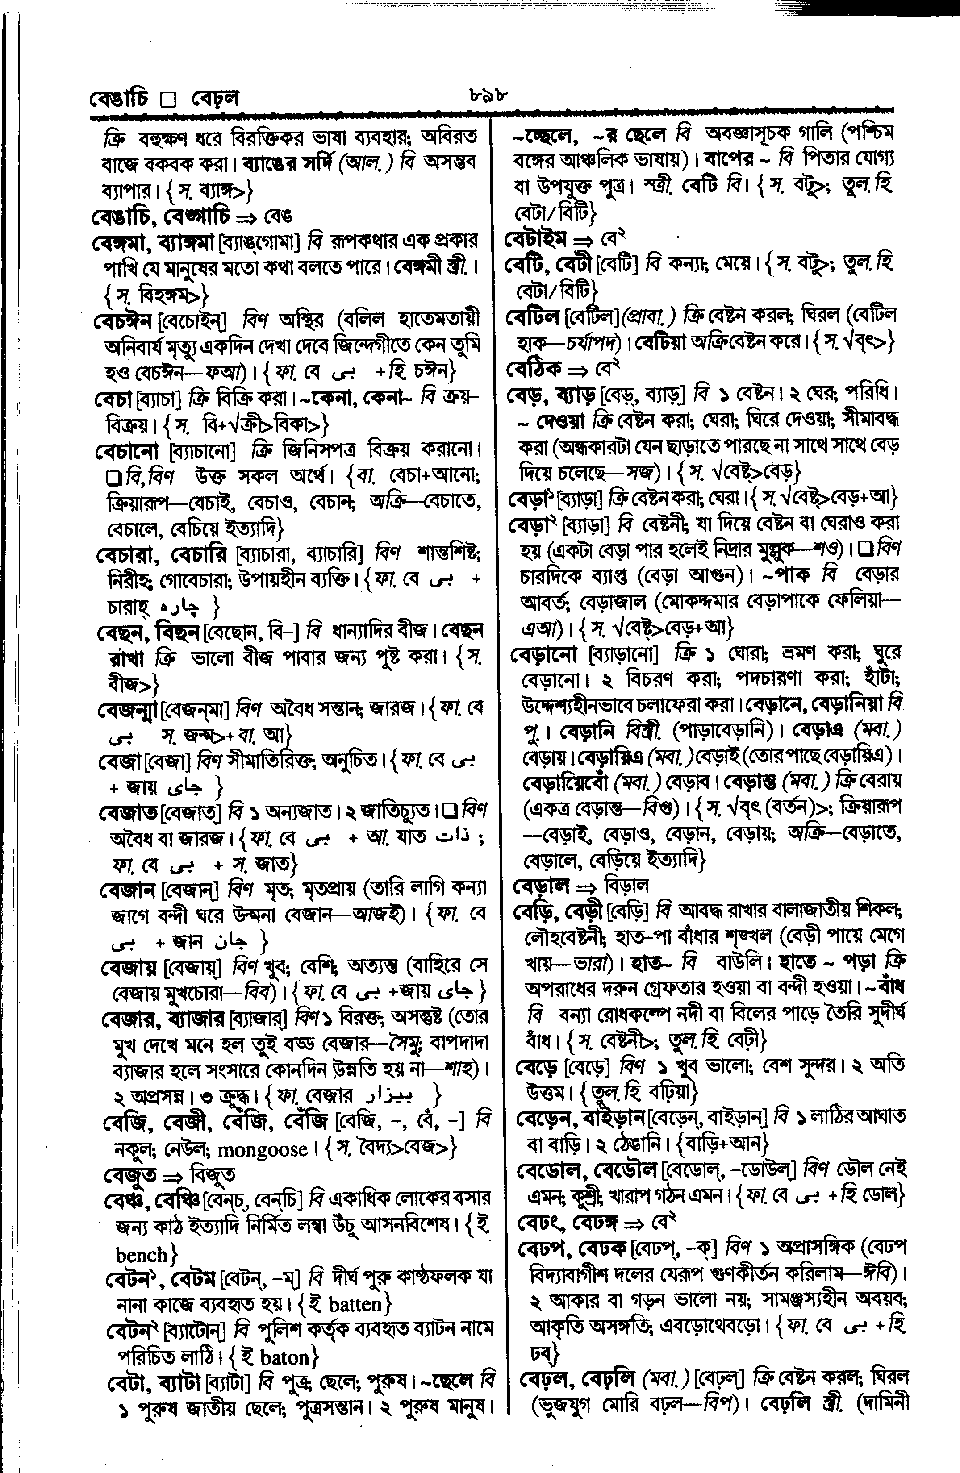 বেঙাচি □ বেঢ়ল
৮৯৮
ক্রি বহুক্ষণ ধরে বিরক্তিকর ভাষা ব্যবহার; অবিরত
বাজে বকবক করা। ব্যাঙের সর্দি (আল.) বি অসম্ভব
ব্যাপার। {স. ব্যাঙ্গ>}
বেঙাচি, বেঙ্গাচি ⇒ বেঙ
বেঙ্গমা, ব্যাঙ্গমা [ব্যাঙ্‌গোমা] বি রূপকথার এক প্রকার
পাখি যে মানুষের মতো কথা বলতে পারে। বেঙ্গমী স্ত্রী.।
{স. বিহঙ্গম>}
বেচঈন [বেচোইন্] বিণ অস্থির (বলিল হাতেমতায়ী
অনিবার্য মৃত্যু একদিন দেখা দেবে জিন্দেগীতে কেন তুমি
হও বেচঈন—ফআ)। {ফা. বে بى +হি চঈন}
বেচা [ব্যাচা] ক্রি বিক্রি করা। ~কেনা, কেনা~ বি ক্রয়-
বিক্রয়। {স. বি+√ক্রী>বিকা>}
বেচানো [ব্যাচানো] ক্রি জিনিসপত্র বিক্রয় করানো।
❑ বি, বিণ উক্ত সকল অর্থে। {বা. বেচা+আনো;
ক্রিয়ারূপ—বেচাই, বেচাও, বেচান; অক্রি—বেচাতে,
বেচালে, বেচিয়ে ইত্যাদি}
বেচারা, বেচারি [ব্যাচারা, ব্যাচারি] বিণ শান্তশিষ্ট;
নিরীহ; গোবেচারা; উপায়হীন ব্যক্তি। {ফা. বে بى +
চারাহ্ چاره }
বেছন, বিছন [বেছোন, বি-] বি ধান্যাদির বীজ। বেছন
রাখা ক্রি ভালো বীজ পাবার জন্য পুষ্ট করা। {স.
বীজ>}
বেজন্মা [বেজন্‌মা] বিণ অবৈধ সন্তান; জারজ। {ফা. বে
بى স. জন্ম>+বা. আ}
বেজা [বেজা] বিণ সীমাতিরিক্ত; অনুচিত। {ফা. বে بى
+ জায় جاى }
বেজাত [বেজাত্] বি ১ অন্যজাত। ২ জাতিচ্যুত। ❑ বিণ
অবৈধ বা জারজ। {ফা. বে بى + আ. যাত ذات ;
ফা. বে بى + স. জাত}
বেজান [বেজান্] বিণ মৃত; মৃতপ্রায় (তারি লাগি কন্যা
জাগে বন্দী ঘরে উন্মনা বেজান—আজই)। {ফা. বে
بى + জান جان }
বেজায় [বেজায়্] বিণ খুব; বেশি; অত্যন্ত (বাহিরে সে
বেজায় মুখচোরা—বিব)। {ফা. বে بى +জায় جاى }
বেজার, ব্যাজার [ব্যাজার্] বিণ ১ বিরক্ত; অসন্তুষ্ট (তোর
মুখ দেখে মনে হল তুই বড্ড বেজার—সৈমু; বাপদাদা
ব্যাজার হলে সংসারে কোনদিন উন্নতি হয় না—শাহ)।
২ অপ্রসন্ন। ৩ ক্রুদ্ধ। {ফা. বেজার بيزار }
বেজি, বেজী, বেঁজি, বেঁজি [বেজি, -, বেঁ, -] বি
নকুল; নেউল; mongoose। {স. বৈদ্য>বেজ>}
বেজুত ⇒ বিজুত
বেঞ্চ, বেঞ্চি [বেন্‌চ, বেন্‌চি] বি একাধিক লোকের বসার
জন্য কাঠ ইত্যাদি নির্মিত লম্বা উঁচু আসনবিশেষ। {ই
bench}
বেটন¹, বেটম [বেটন্, -ম্] বি দীর্ঘ পুরু কাষ্ঠফলক যা
নানা কাজে ব্যবহৃত হয়। {ই batten}
বেটন² [ব্যাটোন্] বি পুলিশ কর্তৃক ব্যবহৃত ব্যাটন নামে
পরিচিত লাঠি। {ই baton}
বেটা, ব্যাটা [ব্যাটা] বি পুত্র; ছেলে; পুরুষ। ~ছেলে বি
১ পুরুষ জাতীয় ছেলে; পুত্রসন্তান। ২ পুরুষ মানুষ।
~চ্ছেলে, ~র ছেলে বি অবজ্ঞাসূচক গালি (পশ্চিম
বঙ্গের আঞ্চলিক ভাষায়)। বাপের ~ বি পিতার যোগ্য
বা উপযুক্ত পুত্র। স্ত্রী. বেটি বি। {স. বটু>; তুল. হি
বেটা/বিটি}
বেটাইম ⇒ বে²
বেটি, বেটী [বেটি] বি কন্যা; মেয়ে। {স. বটু>; তুল. হি
বেটা/বিটি}
বেটিল [বেটিল] (প্রাবা.) ক্রি বেষ্টন করল; ঘিরল (বেটিল
হাক—চর্যাপদ)। বেটিয়া অক্রি বেষ্টন করে। {স. √বৃৎ>}
বেঠিক ⇒ বে²
বেড়, ব্যাড় [বেড়্, ব্যাড়্] বি ১ বেষ্টন। ২ ঘের; পরিধি।
~ দেওয়া ক্রি বেষ্টন করা; ঘেরা; ঘিরে দেওয়া; সীমাবদ্ধ
করা (অন্ধকারটা যেন ছাড়াতে পারছে না সাথে সাথে বেড়
দিয়ে চলেছে—সজ)। {স. √বেষ্ট্>বেড়}
বেড়া¹ [ব্যাড়া] ক্রি বেষ্টন করা; ঘেরা। {স. √বেষ্ট্>বেড়+আ}
বেড়া² [ব্যাড়া] বি বেষ্টনী; যা দিয়ে বেষ্টন বা ঘেরাও করা
হয় (একটা বেড়া পার হলেই নিদ্রার মুল্লুক—শও)। ❑ বিণ
চারদিকে ব্যাপ্ত (বেড়া আগুন)। ~পাক বি বেড়ার
আবর্ত; বেড়াজাল (মোকদ্দমার বেড়াপাকে ফেলিয়া—
এআ)। {স. √বেষ্ট্>বেড়+আ}
বেড়ানো [ব্যাড়ানো] ক্রি ১ ঘোরা; ভ্রমণ করা; ঘুরে
বেড়ানো। ২ বিচরণ করা; পদচারণা করা; হাঁটা;
উদ্দেশ্যহীনভাবে চলাফেরা করা। বেড়ানে, বেড়ানিয়া বি
পু.। বেড়ানি বিস্ত্রী (পাড়াবেড়ানি)। বেড়াএ (মবা.)
বেড়ায়। বেড়ায়িএ (মবা.) বেড়াই (তোর পাছে বেড়ায়িএ)।
বেড়ায়িবোঁ (মবা.) বেড়াব। বেড়ান্ত (মবা.) ক্রি বেরায়
(একত্র বেড়ান্ত—বিগু)। {স. √বৃৎ (বর্তন)>; ক্রিয়ারূপ
—বেড়াই, বেড়াও, বেড়ান, বেড়ায়; অক্রি—বেড়াতে,
বেড়ালে, বেড়িয়ে ইত্যাদি}
বেড়াল ⇒ বিড়াল
বেড়ি, বেড়ী [বেড়ি] বি আবদ্ধ রাখার বালাজাতীয় শিকল;
লৌহবেষ্টনী; হাত-পা বাঁধার শৃঙ্খল (বেড়ী পায়ে মেগে
খায়—ভারা)। হাত~ বি বাউলি। হাতে ~ পড়া ক্রি
অপরাধের দরুন গ্রেফতার হওয়া বা বন্দী হওয়া। ~বাঁধ
বি বন্যা রোধকল্পে নদী বা বিলের পাড়ে তৈরি সুদীর্ঘ
বাঁধ। {স. বেষ্টনী>; তুল. হি বেঢ়ী}
বেড়ে [বেড়ে] বিণ ১ খুব ভালো; বেশ সুন্দর। ২ অতি
উত্তম। {তুল. হি বঢ়িয়া}
বেড়েন, বাইড়ান [বেড়েন্, বাইড়ান্] বি ১ লাঠির আঘাত
বা বাড়ি। ২ ঠেঙানি। {বাড়ি+আন}
বেডোল, বেডৌল [বেডোল্, -ডোউল্] বিণ ডৌল নেই
এমন; কুশ্রী; খারাপ গঠন এমন। {ফা. বে بى +হি ডোল}
বেঢং, বেঢঙ্গ ⇒ বে²
বেঢপ, বেঢক [বেঢপ্, -ক্] বিণ ১ অপ্রাসঙ্গিক (বেঢপ
বিদ্যাবাগীশ দলের যেরূপ গুণকীর্তন করিলাম—ঈবি)।
২ আকার বা গড়ন ভালো নয়; সামঞ্জস্যহীন অবয়ব;
আকৃতি অসঙ্গতি; এবড়োথেবড়ো। {ফা. বে بى +হি
ঢব}
বেঢ়ল, বেঢ়লি (মবা.) [বেঢ়ল্] ক্রি বেষ্টন করল; ঘিরল
(ভুজযুগ মোরি বঢ়ল—বিপ)। বেঢ়লি স্ত্রী. (দামিনী